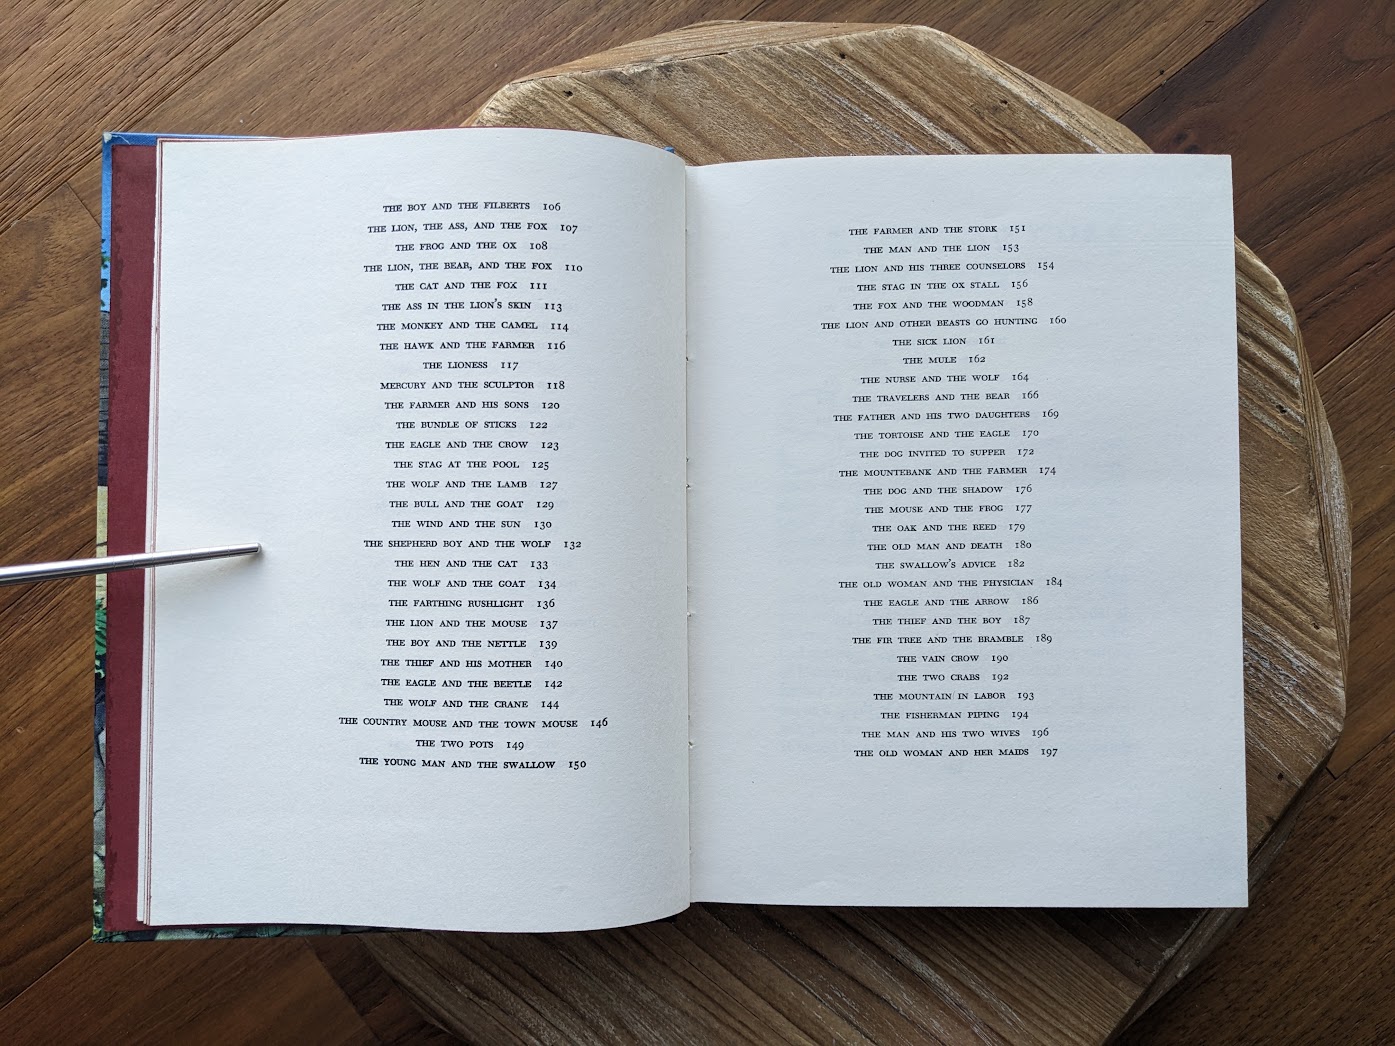 THE BOY AND THE FILBERTS 106
THE LION, THE ASS, AND THE FOX 107
THE FROG AND THE OX 108
THE LION, THE BEAR, AND THE FOX 110
THE CAT AND THE FOX 111
THE ASS IN THE LION'S SKIN 113
THE MONKEY AND THE CAMEL 114
THE HAWK AND THE FARMER 116
THE LIONESS 117
MERCURY AND THE SCULPTOR 118
THE FARMER AND HIS SONS 120
THE BUNDLE OF STICKS 122
THE EAGLE AND THE CROW 123
THE STAG AT THE POOL 125
THE WOLF AND THE LAMB 127
THE BULL AND THE GOAT 129
THE WIND AND THE SUN 130
THE SHEPHERD BOY AND THE WOLF 132
THE HEN AND THE CAT 133
THE WOLF AND THE GOAT 134
THE FARTHING RUSHLIGHT 136
THE LION AND THE MOUSE 137
THE BOY AND THE NETTLE 139
THE THIEF AND HIS MOTHER 140
THE EAGLE AND THE BEETLE 142
THE WOLF AND THE CRANE 144
THE COUNTRY MOUSE AND THE TOWN MOUSE 146
THE TWO POTS 149
THE YOUNG MAN AND THE SWALLOW 150
THE FARMER AND THE STORK 151
THE MAN AND THE LION 153
THE LION AND HIS THREE COUNSELORS 154
THE STAG IN THE OX STALL 156
THE FOX AND THE WOODMAN 158
THE LION AND OTHER BEASTS GO HUNTING 160
THE SICK LION 161
THE MULE 162
THE NURSE AND THE WOLF 164
THE TRAVELERS AND THE BEAR 166
THE FATHER AND HIS TWO DAUGHTERS 169
THE TORTOISE AND THE EAGLE 170
THE DOG INVITED TO SUPPER 172
THE MOUNTEBANK AND THE FARMER 174
THE DOG AND THE SHADOW 176
THE MOUSE AND THE FROG 177
THE OAK AND THE REED 179
THE OLD MAN AND DEATH 180
THE SWALLOW'S ADVICE 182
THE OLD WOMAN AND THE PHYSICIAN 184
THE EAGLE AND THE ARROW 186
THE THIEF AND THE BOY 187
THE FIR TREE AND THE BRAMBLE 189
THE VAIN CROW 190
THE TWO CRABS 192
THE MOUNTAIN IN LABOR 193
THE FISHERMAN PIPING 194
THE MAN AND HIS TWO WIVES 196
THE OLD WOMAN AND HER MAIDS 197